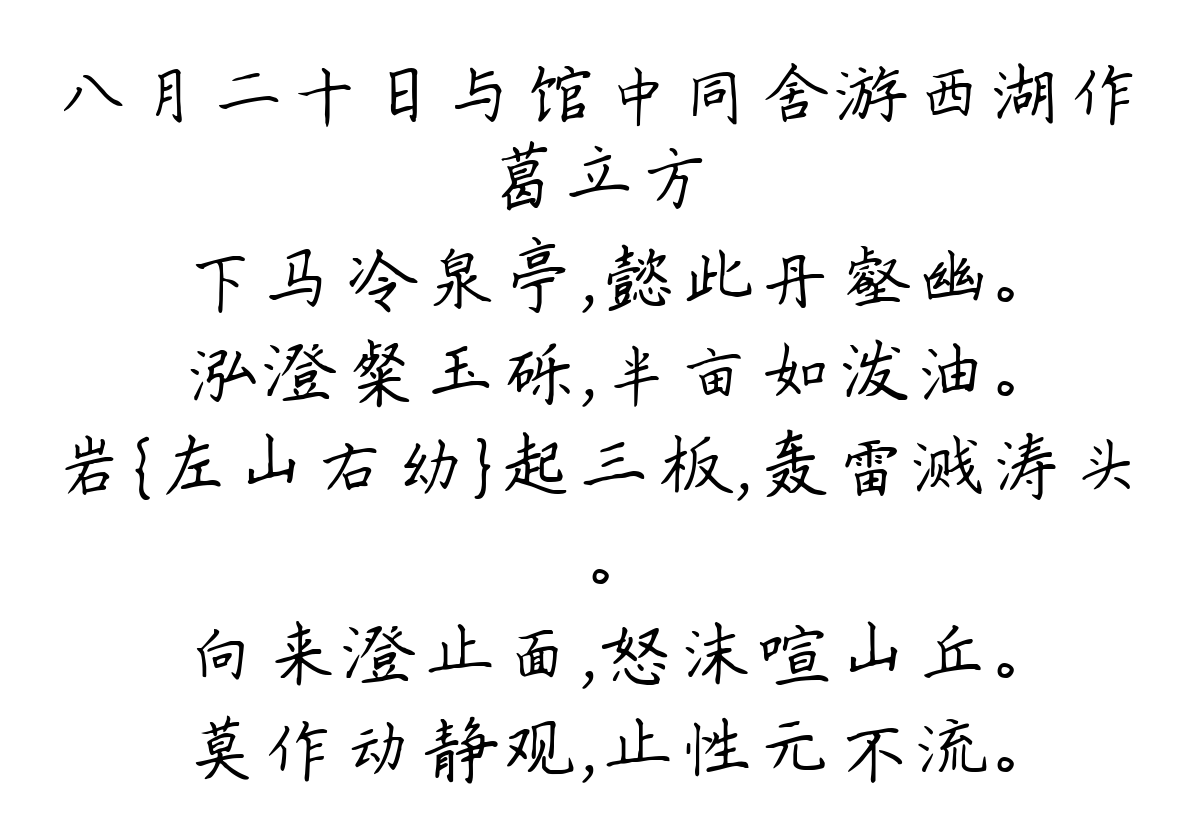 八月二十日与馆中同舍游西湖作
葛立方
下马冷泉亭,懿此丹壑幽。
泓澄粲玉砾,半亩如泼油。
岩{左山右幼}起三板,轰雷溅涛头
。
向来澄止面,怒沫喧山丘。
莫作动静观,止性元不流。